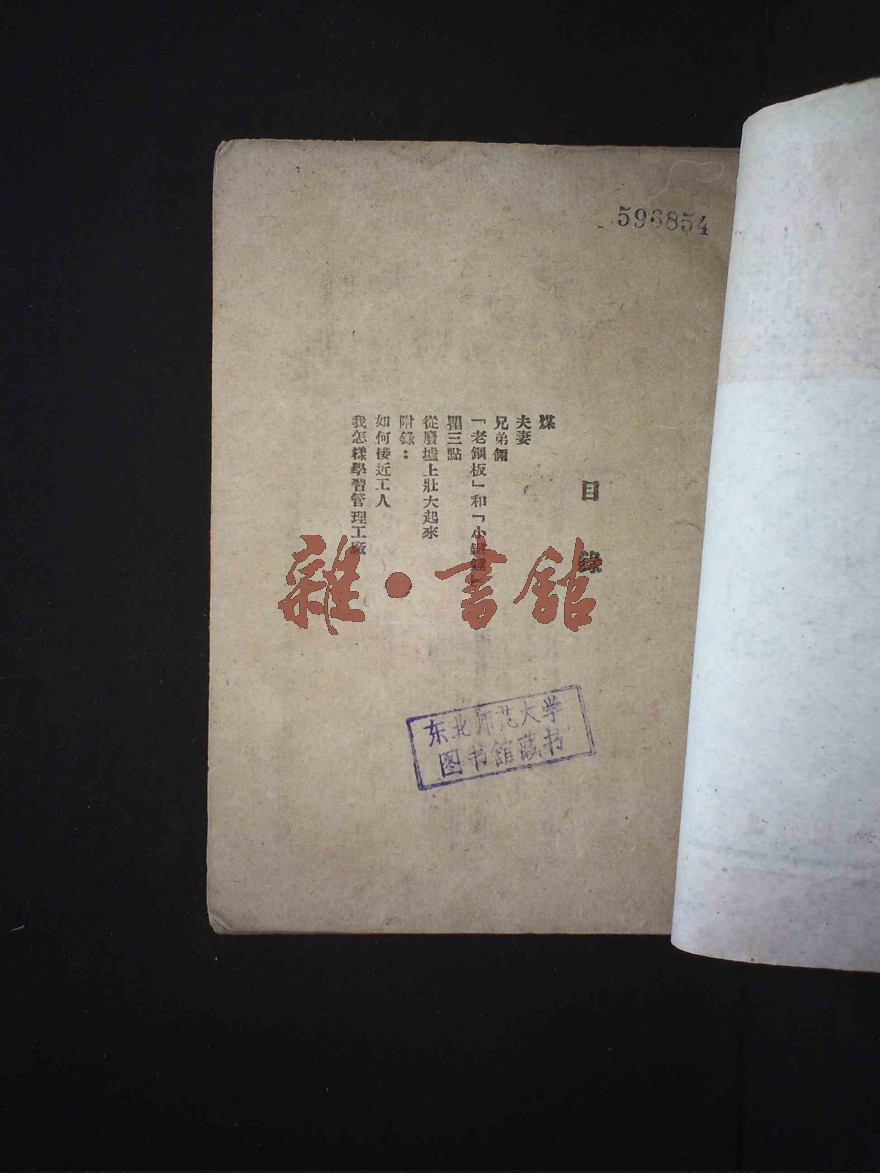 596854
目錄
煤
夫妻
兄弟倆
「老鋼板」和「小
瞿三點
從廢墟上壯大起來
附錄：
如何接近工人
我怎樣學習管理工廠
雜·書館
东北师范大学
图书馆藏书